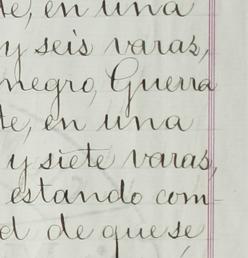 te, en una
y seis varas,
negro, Guerra
te, en una
y siete varas,
estando com-
d de que se